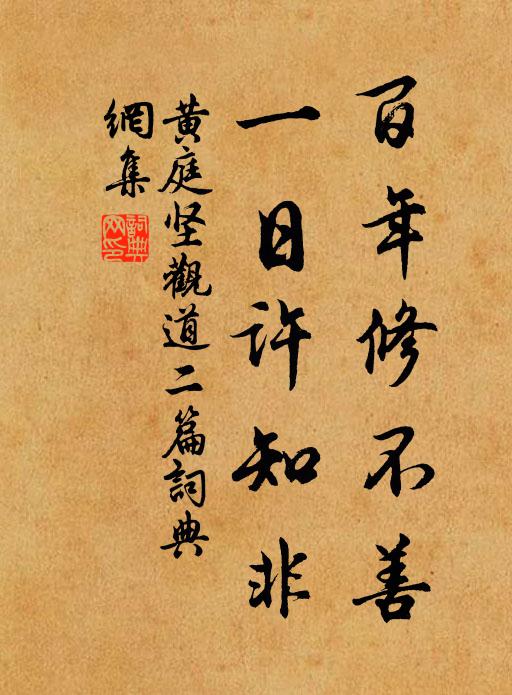 百年修不善
一日许知非
黄庭坚觀道二篇詞典
網集
詞典
网印